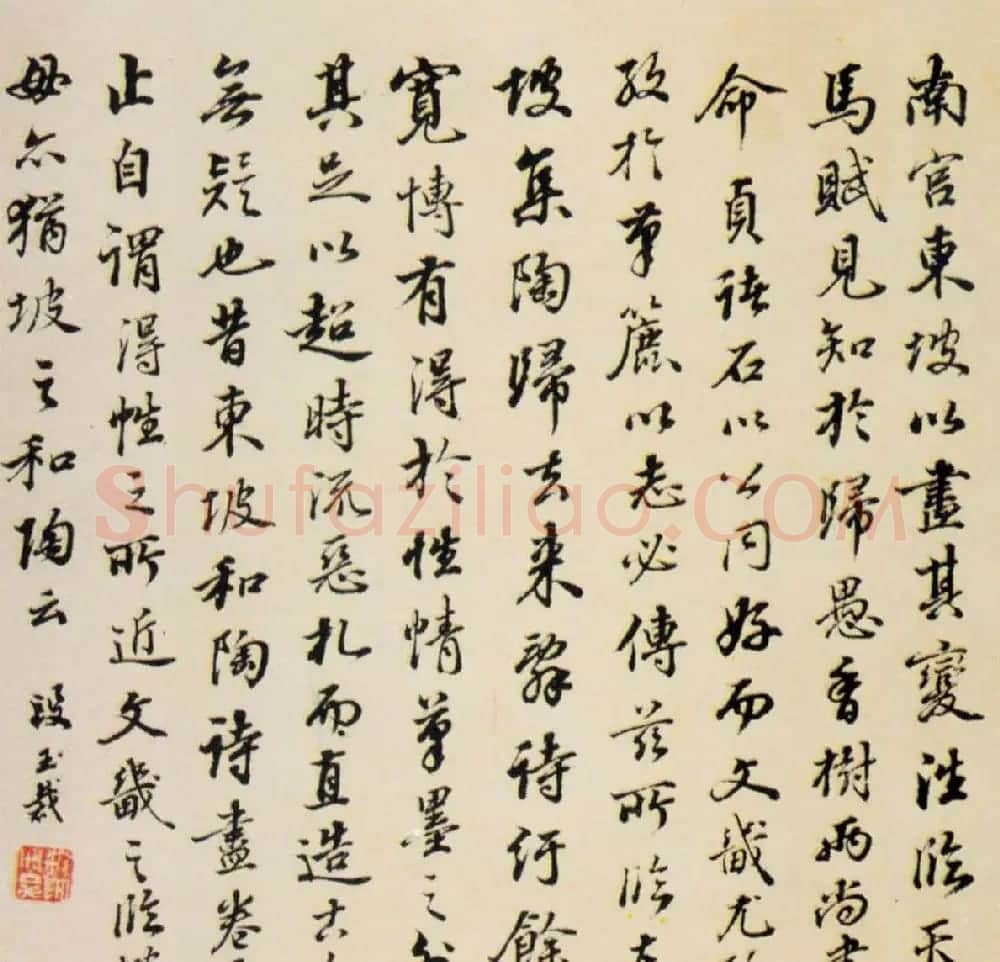 南宮東坡以盡其變法臨天
馬賦見知於歸愚香樹兩尚書
命貞諸石以公同好而文戢尤
孜於筆簏以老必傳茲所臨
坡集陶歸去來辭詩紆餘
寬博有得於性情筆墨之外
其足以超時流惡札而直造古
無疑也昔東坡和陶詩盡卷
止自謂得性之所近文戢之臨坡
毋亦猶坡之和陶云 段玉裁
Shufaziliao.COM